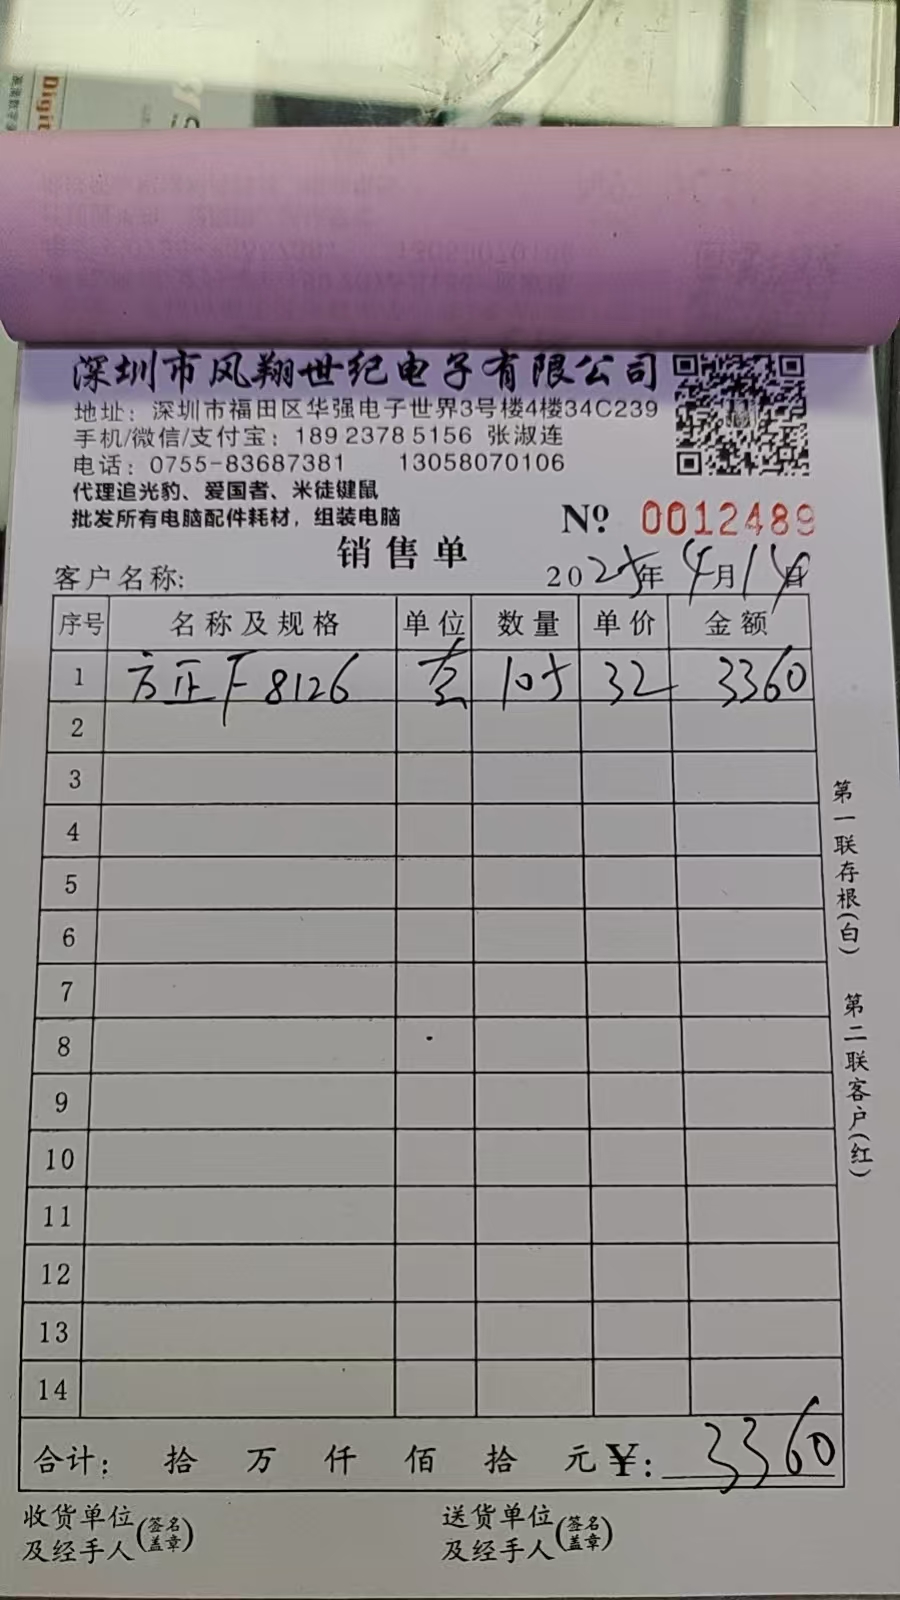 Digit
深圳市风翔世纪电子有限公司
地址：深圳市福田区华强电子世界3号楼4楼34C239
手机/微信/支付宝：189 2378 5156 张淑连
电话：0755-83687381 13058070106
代理追光豹、爱国者、米徒键鼠
批发所有电脑配件耗材，组装电脑
Nº 0012489
销售单
客户名称: 2025年4月14日
序号 名称及规格 单位 数量 单价 金额
1 方正F8126 套 105 32 3360
2
3
4
5
6
7
8
9
10
11
12
13
14
合计： 拾 万 仟 佰 拾 元 ¥: 3360
收货单位及经手人(签名盖章) 送货单位及经手人(签名盖章)
第一联存根(白) 第二联客户(红)